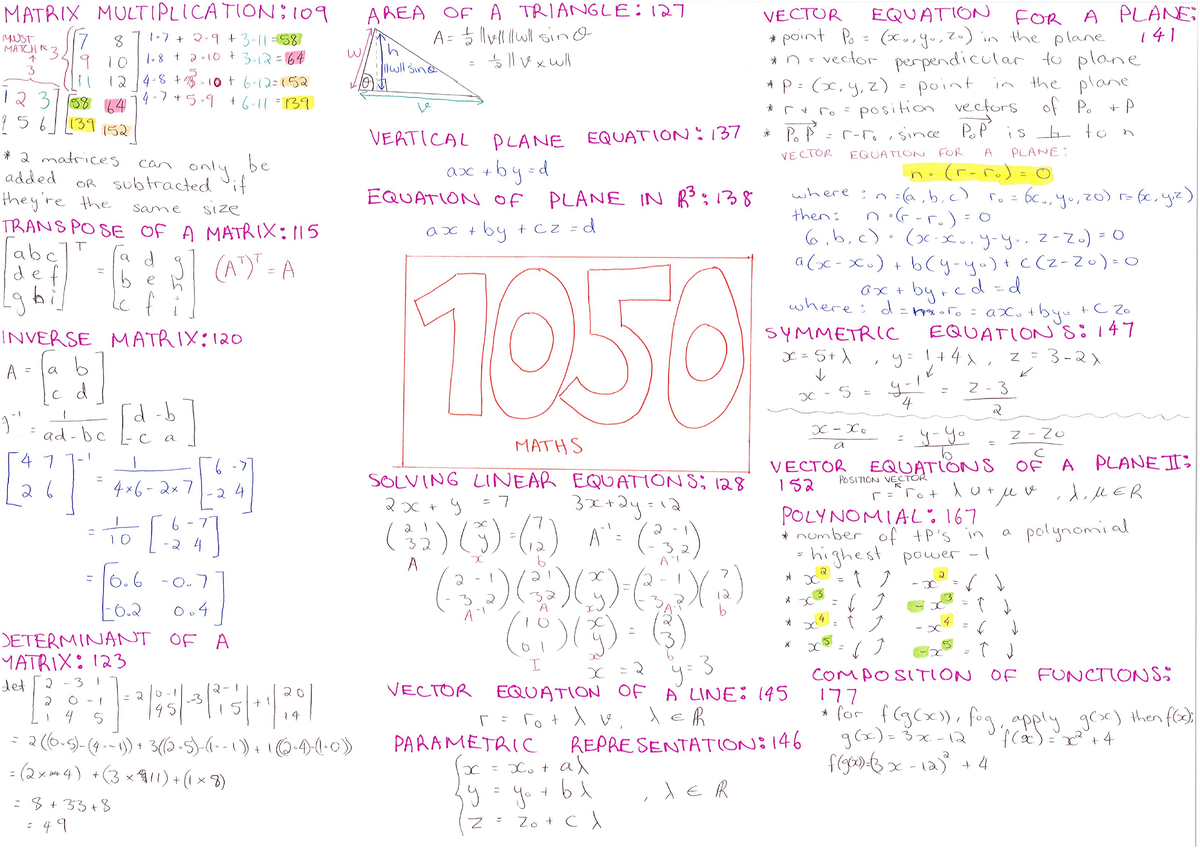 MATRIX MULTIPLICATION: 109
MUST
MATCH
3
3
[7 8
9 10
11 12]
1·7 + 2·9 + 3·11 = 58
1·8 + 2·10 + 3·12 = 64
4·8 + 5·10 + 6·12 = 152
4·7 + 5·9 + 6·11 = 139
1 2 3] [58 64
5 6] 139 152]
* 2 matrices can only be
added OR subtracted if
they're the same size
TRANSPOSE OF A MATRIX: 115
[a b c
d e f
g h i]ᵀ = [a d g
b e h
c f i] (Aᵀ)ᵀ = A
INVERSE MATRIX: 120
A = [a b
c d]
⁻¹ = 1/ad-bc [d -b
-c a]
[4 7
2 6]⁻¹ = 1/4×6-2×7 [6 -7
-2 4]
= 1/10 [6 -7
-2 4]
= [0.6 -0.7
-0.2 0.4]
DETERMINANT OF A
MATRIX: 123
det [2 -3 1
2 0 -1
1 4 5] = 2|0 -1
4 5| -3|2 -1
1 5| +1|2 0
1 4|
= 2((0·5)-(4·-1)) + 3((2·5)-(1·-1)) + 1((2·4)-(1·0))
= (2×4) + (3×11) + (1×8)
= 8 + 33 + 8
= 49
AREA OF A TRIANGLE: 127
w
h
||w|| sin θ
θ
v
A = ½ ||v|| ||w|| sin θ
= ½ ||v × w||
VERTICAL PLANE EQUATION: 137
ax + by = d
EQUATION OF PLANE IN R³: 138
ax + by + cz = d
1050
MATHS
SOLVING LINEAR EQUATIONS: 128
2x + y = 7 3x + 2y = 12
(2 1
3 2) (x
y) = (7
12) A⁻¹ = (2 -1
-3 2)
A x b A⁻¹
(2 -1
-3 2) (2 1
3 2) (x
y) = (2 -1
-3 2) (7
12)
A⁻¹ A xy A⁻¹ b
(1 0
0 1) (x
y) = (2
3)
I xy b
x = 2 y = 3
VECTOR EQUATION OF A LINE: 145
r = r₀ + λv, λ ∈ R
PARAMETRIC REPRESENTATION: 146
{x = x₀ + aλ
y = y₀ + bλ , λ ∈ R
z = z₀ + cλ
VECTOR EQUATION FOR A PLANE:
141
* point P₀ = (x₀, y₀, z₀) in the plane
* n = vector perpendicular to plane
* P = (x, y, z) = point in the plane
* r + r₀ = position vectors of P₀ + P
* P₀P = r-r₀, since P₀P is ⊥ to n
VECTOR EQUATION FOR A PLANE:
n · (r - r₀) = 0
where: n = (a, b, c) r₀ = (x₀, y₀, z0) r = (x, y, z)
then: n · (r - r₀) = 0
(a, b, c) · (x-x₀, y-y₀, z-z₀) = 0
a(x-x₀) + b(y-y₀) + c(z-z₀) = 0
ax + by + cd = d
where: d = n·r₀ = ax₀ + by₀ + cz₀
SYMMETRIC EQUATION'S: 147
x = 5 + λ , y = 1 + 4λ , z = 3 - 2λ
x - 5 = y-1/4 = z-3/2
x-x₀/a = y-y₀/b = z-z₀/c
VECTOR EQUATIONS OF A PLANE II:
152 POSITION VECTOR
r = r₀ + λu + μv , λ, μ ∈ R
POLYNOMIAL: 167
* number of tP's in a polynomial
= highest power - 1
* x² = ↑ ↗ -x² = ↙ ↓
* x³ = ↙ ↗ -x³ = ↑ ↓
* x⁴ = ↑ ↗ -x⁴ = ↙ ↓
* x⁵ = ↙ ↗ -x⁵ = ↑ ↓
COMPOSITION OF FUNCTIONS:
177
* for f(g(x)), fog, apply g(x) then f(x);
g(x) = 3x - 12 f(x) = x² + 4
f(g(x)) = (3x - 12)² + 4